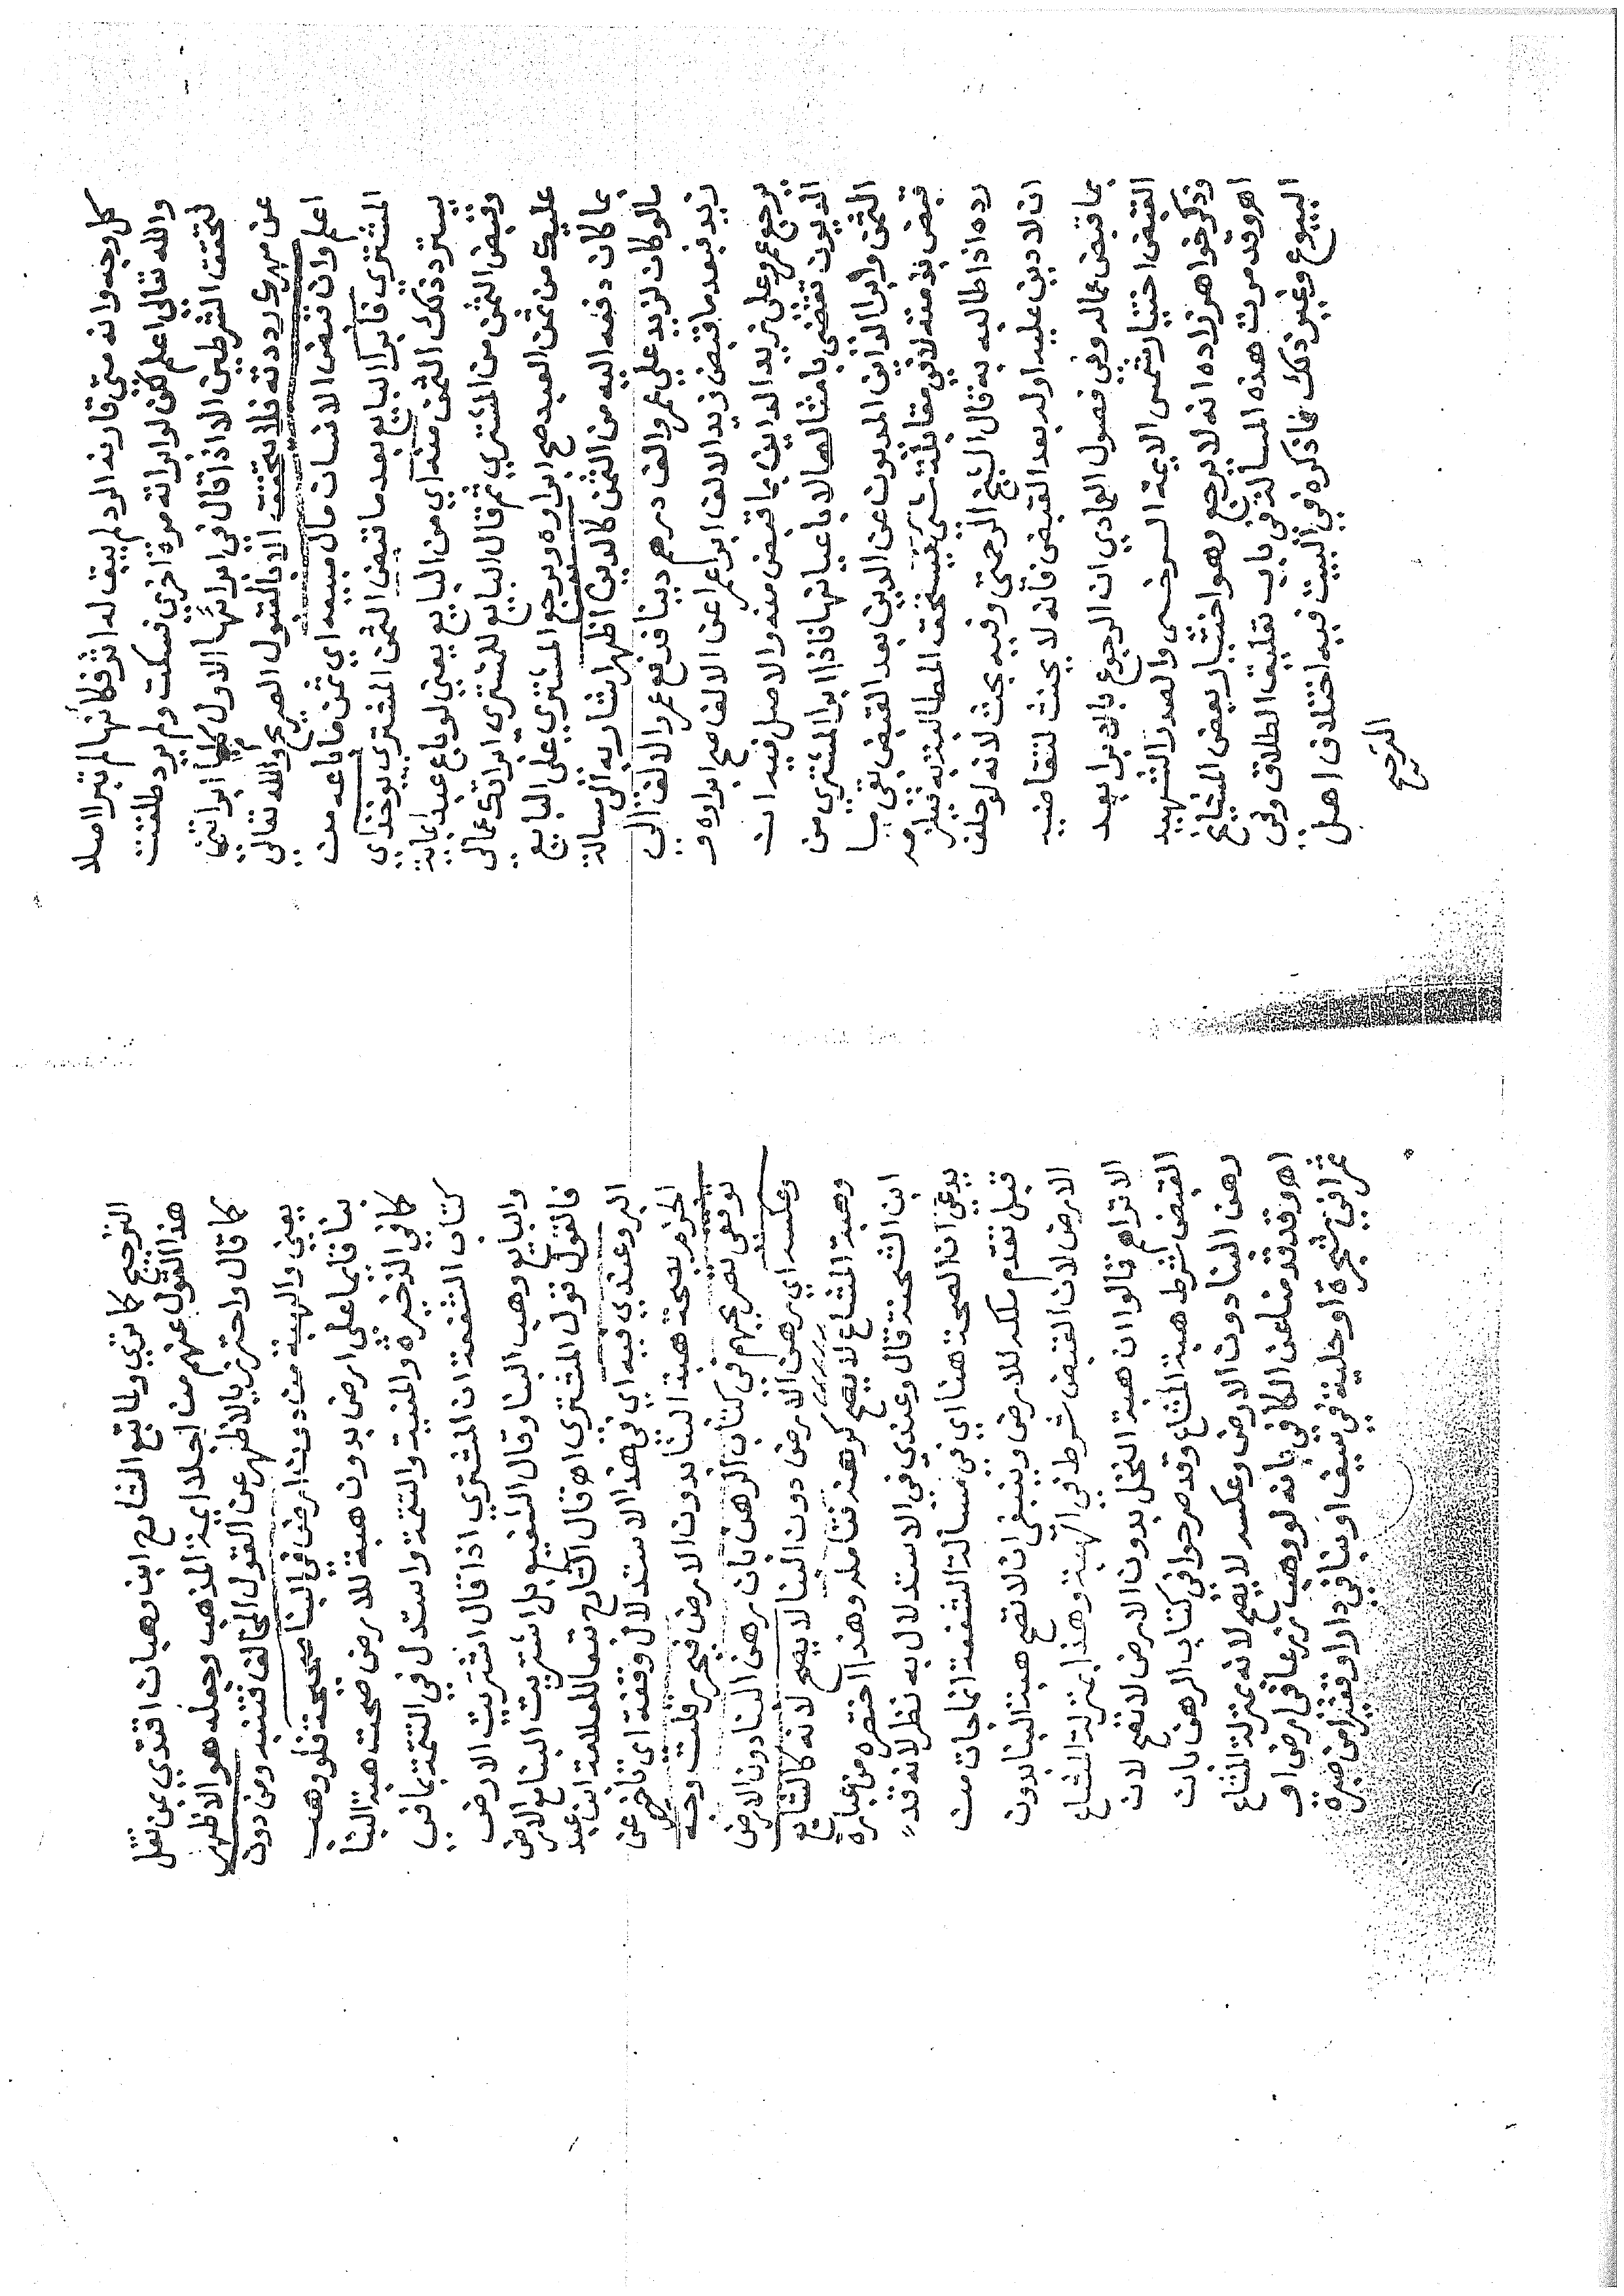 كل وجه وانه متى قارنه الرد لم يبق له اثر فكأنها لم تبرا اصلا
والله تعالى اعلم لكن لو ابراته مرة اخرى فسكت ولم يرد طلقت
لتحقق الشرطين الا اذا قال في ابرائها الاول كلما ابراتني
عن مهرك رددته فلا يتحقق الا بالقبول الصريح والله تعالى
اعلم وان قبض الانسان مال مبيعه اي ثمن ما باعه من
المشتري فابرا البايع بعد ما قبض الثمن المشتري يوخذ اي
يسترد ذلك الثمن منه اي من البايع يعني لو باع عبدا بماية
وقبض الثمن من المشتري ثم قال البايع للمشتري ابراتك عمالي
عليك من ثمن العبد صح ابراوه ويرجع المشتري على البايع
بما كان دفعه اليه من الثمن كالدين اظهر اشار به الى مسالة
مالو كان لزيد على عمرو الف درهم دينا فدفع عمرو الالف الى
زيد فبعد ما قبض زيد الالف ابرا عمرا عن الالف صح ابراوه و
يرجع عمرو على زيد الداين بما قبض منه والاصل فيه ان
الديون تقضى بامثالها لا باعيانها فاذا ابرا المشتري من
الثمن او ابرا الداين المديون عن الدين بعد القبض بقي ما
قبض بذمته لا في مقابلة شي فيستحق المطالبة به فيلزمه
رده اذا طالبه به قال الشيخ الرحمتي وفيه بحث لانه لو حلف
ان لا دين عليه اوله بعد القبض فانه لا يحنث لتقاضيه
بما قبض عماله وفي فصول العمادي ان الرجوع بالابرا بعد
القبض اختيار شمس الايمة السرخسي والصدر الشهيد
وذكر خواهر زاده انه لا يرجع وهو اختيار بعض المشايخ
اهـ وقد مرت هذه المسالة في باب تعليق الطلاق وفي
البيوع وغير ذلك فما ذكره في البيت فيه اختلاف اهل
الترجيح
الترجيح كما ترى ولما تبع الشارح ابن وهبان اقتدى بمن نقل
هذا القول عنهم من اجلا ايمة المذهب وجعله هو الاظهر
كما قال واحترز بالاظهر عن القول المخالف فتنبه ومن دون
يعني والهبة من دون ارض في البنا صحيحة فلو وهب
بنا قايما على ارض بدون هبة للارض صحت هبة البنا
كما في الذخيرة والمنية والتتمة واستدل في التتمة بما في
كتاب الشفعة ان المشتري اذا قال اشتريت الارض
والبايع وهب البنا وقال الشفيع بل اشتريت البنا مع الارض
فالقول قول المشتري اهـ قال الشارح تبعا للعلامة ابن عبد
البر وعندي فيه اي في هذا الاستدلال وقفة اي تاخر عن
الجزم بصحة هبة البنا بدون الارض فيحرر قلت وجه
توقفي تصريحهم في كتاب الرهن بان رهن البنا دون الارض
وعكسه اي رهن الارض دون البنا لا يصح لانه كالشايع
وهبة المشاع لا يصح كرهنه فتامله وهذا اختصره من عبارة
ابن الشحنة قال وعندي في الاستدلال به نظر لانه قد
يدعى ان الصحة هنا اي في مسالة الشفعة انما جات من
قبل تقدم ملكه للارض وينبغي ان لا تصح هبة البنا بدون
الارض لان القبض شرط في الهبة وهذا بمنزلة المشاع
الا تراهم قالوا ان هبة النخل بدون الارض لا تصح لان
القبض شرط هبة المشاع وقد صرحوا في كتاب الرهن بان
رهن البنا دون الارض وعكسه لا يصح لانه بمنزلة الشايع
اهـ وقد قدمنا عن الكافي بانه لو وهب زرعا في ارض او
ثمرا في شجرة او حلية في سيف او بنا في دار او قفيزا من صبرة